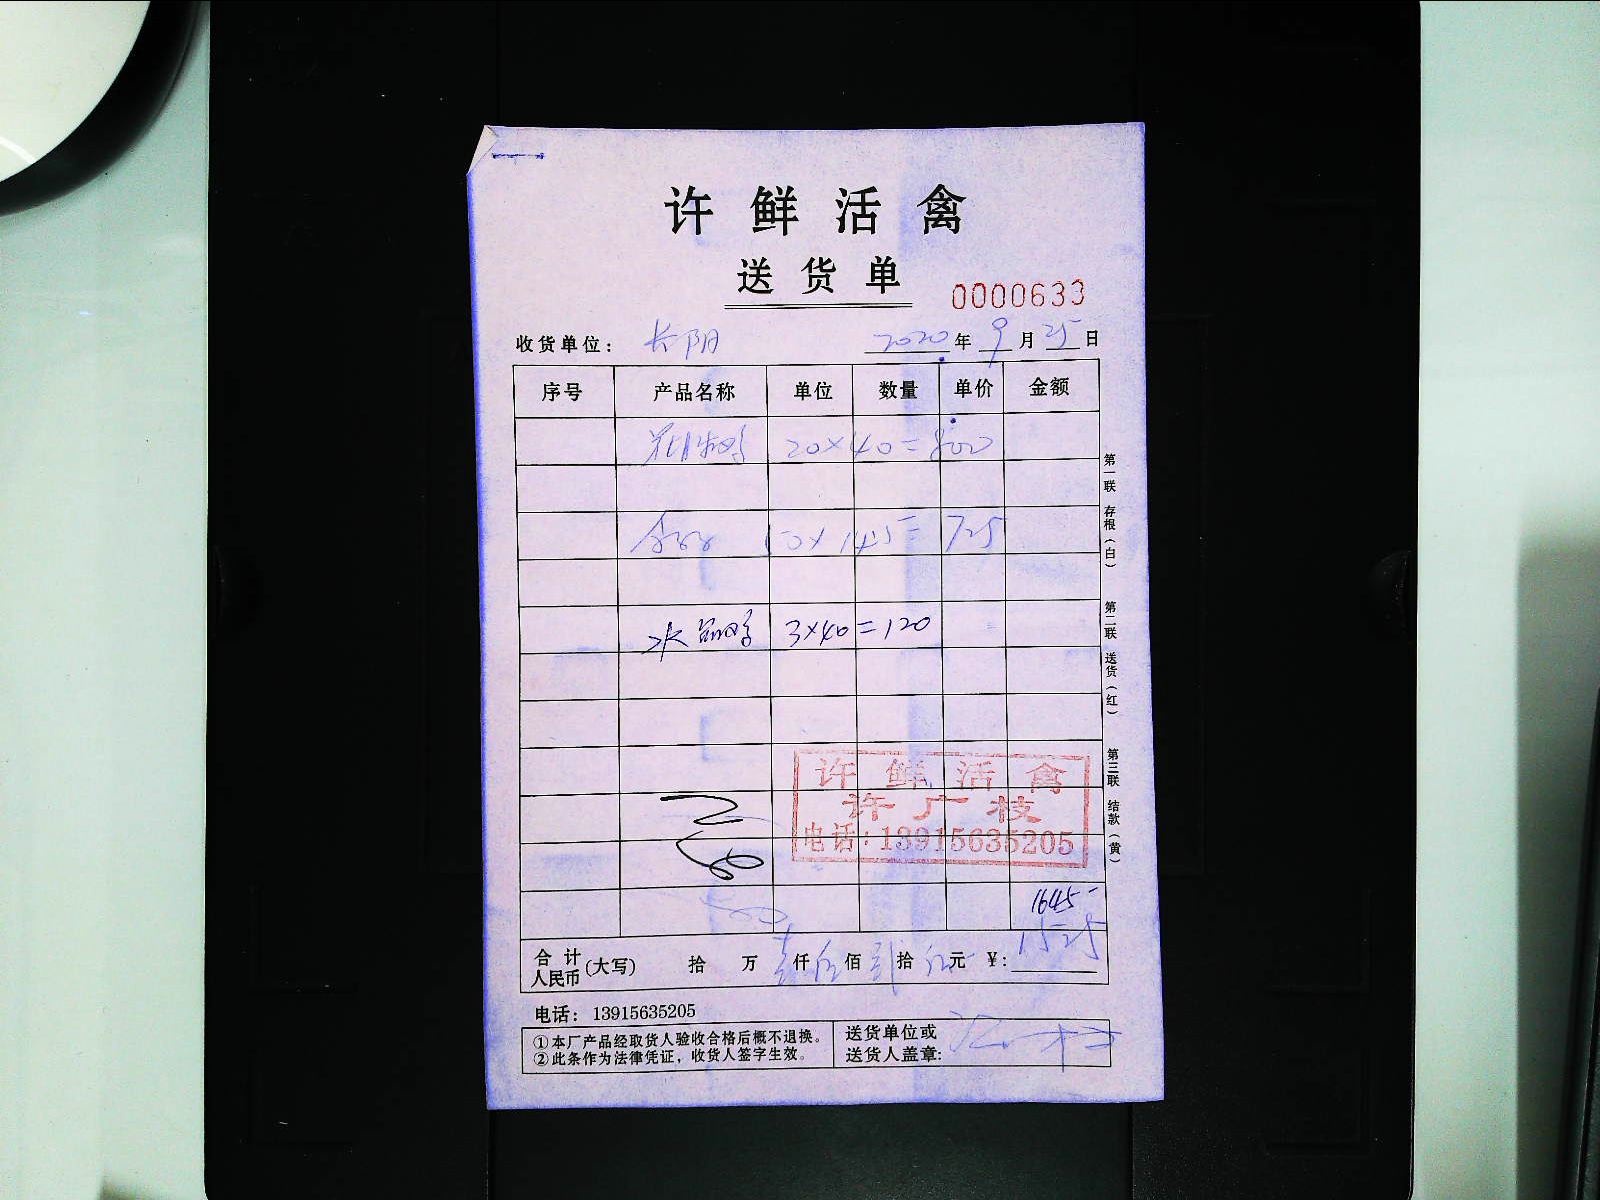 许鲜活禽
送货单
0000633
收货单位： 长阳 2020年9月25日
序号 产品名称 单位 数量 单价 金额
20×40=800
50×145=725
3×40=120
许鲜活禽
许广枝
电话：13915635205
1645-
合计人民币（大写） 拾 万 壹仟伍佰贰拾伍元 ¥：1525
电话：13915635205
①本厂产品经取货人验收合格后概不退换。
②此条作为法律凭证，收货人签字生效。
送货单位或
送货人盖章：
第一联 存根（白）
第二联 送货（红）
第三联 结款（黄）